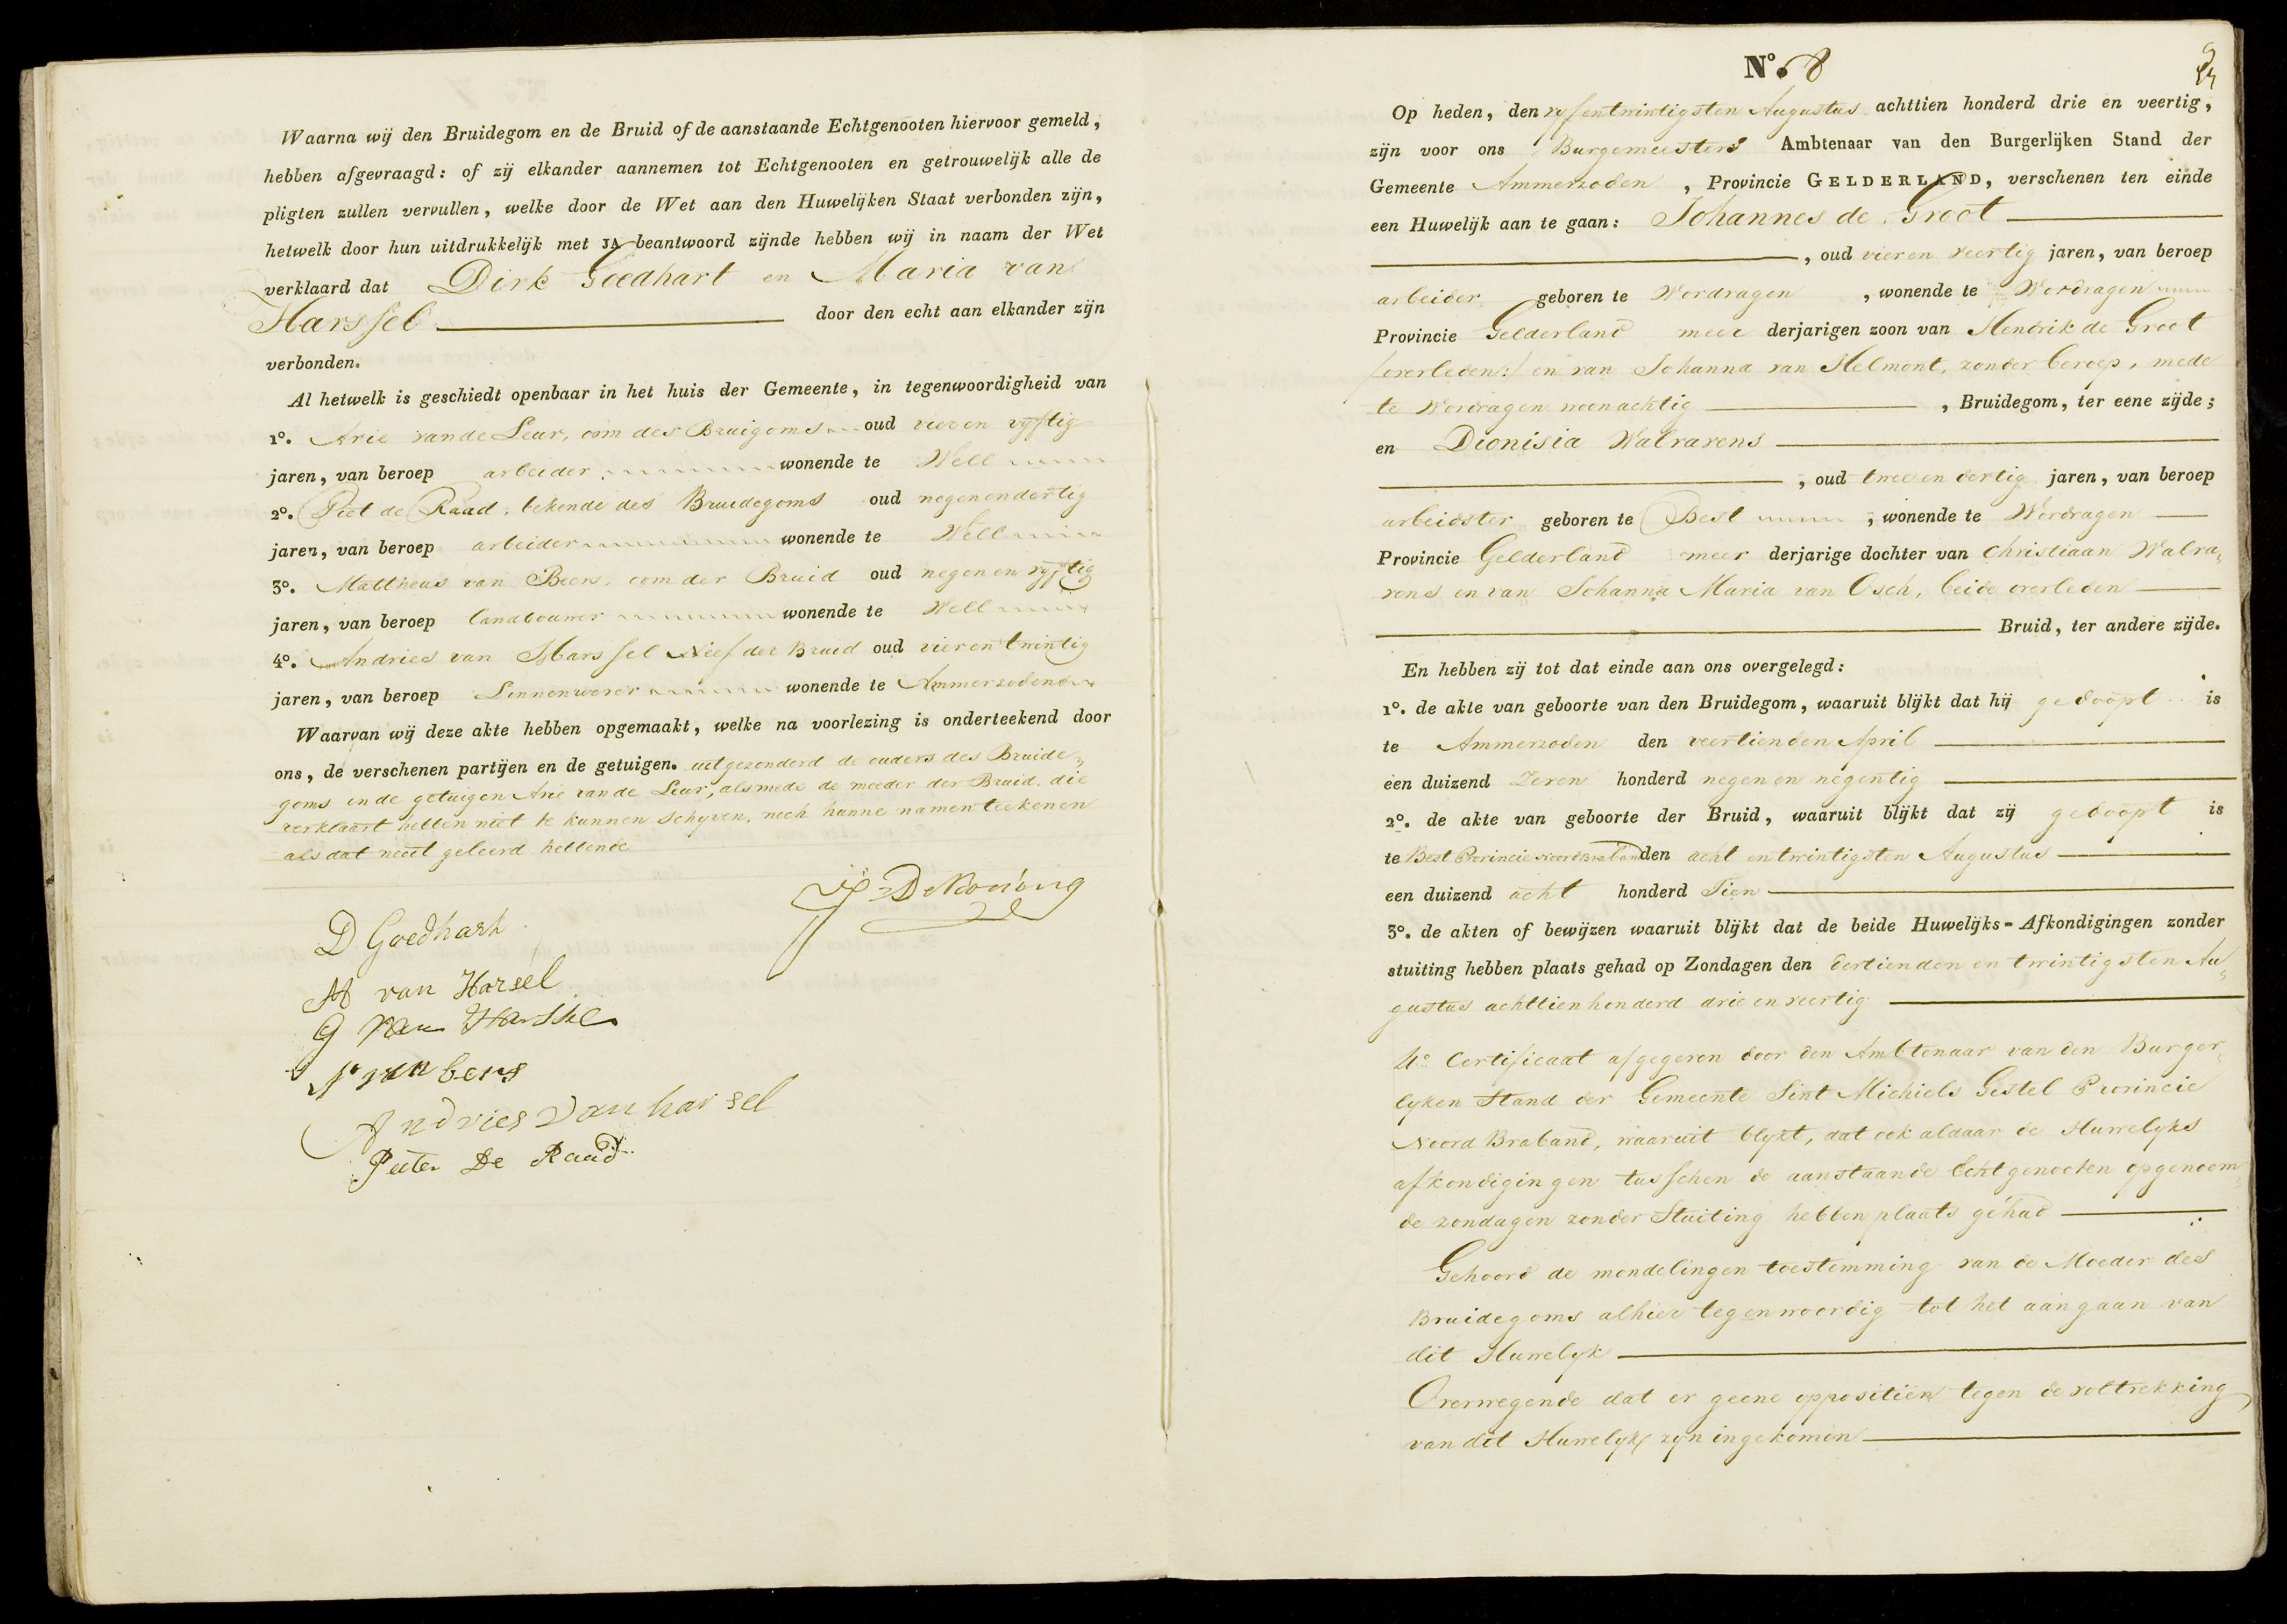 Waarna wij den Bruidegom en de Bruid of de aanstaande Echtgenooten hiervoor gemeld,
hebben afgevraagd: of zij elkander aannemen tot Echtgenooten en getrouwelijk alle de
pligten zullen vervullen, welke door de Wet aan den Huwelijken Staat verbonden zijn,
hetwelk door hun uitdrukkelijk met JA beantwoord zijnde hebben wij in naam der Wet
verklaard dat Dirk Goedhart en Maria van
Harssel door den echt aan elkander zijn
verbonden.
Al hetwelk is geschiedt openbaar in het huis der Gemeente, in tegenwoordigheid van
1º. Arie van de Leur, oom des Bruigoms oud vier en vijftig
jaren, van beroep arbeider wonende te Well
2º. Piet de Raad, bekende des Bruidegoms oud negenendertig
jaren, van beroep arbeider wonende te Well
3º. Mattheus van Beers, oom der Bruid oud negen en vyftig
jaren, van beroep landbouwer wonende te Well
4º. Andries van Harssel Neef der Bruid oud vier en twintig
jaren, van beroep Linnenwever wonende te Ammerzoden
Waarvan wij deze akte hebben opgemaakt, welke na voorlezing is onderteekend door
ons, de verschenen partijen en de getuigen. uitgezonderd de ouders des Bruide„
goms en de getuigen Arie van de Leur, alsmede de moeder der Bruid, die
verklaart hebben niet te kunnen schyven, noch hunne namen teekenen
als dat nooit geleerd hebbende
De Koning
D Goedhart
M van Harsel
G van Harssel
M van bers
Andries van harsel
Peter De Raad
Nº. 8
Op heden, den vyfentwintigsten Augustus achttien honderd drie en veertig,
zijn voor ons Burgemeester Ambtenaar van den Burgerlijken Stand der
Gemeente Ammerzoden, Provincie GELDERLAND, verschenen ten einde
een Huwelijk aan te gaan: Johannes de Groot
, oud vier en veertig jaren, van beroep
arbeider geboren te Wordragen, wonende te Wordragen
Provincie Gelderland meer derjarigen zoon van Hendrik de Groot
/overleden:/ en van Johanna van Helmont, zonder beroep, mede
te Wordragen woonachtig, Bruidegom, ter eene zijde;
en Dionisia Walravens
, oud twee en dertig jaren, van beroep
arbeidster geboren te Best, wonende te Wordragen
Provincie Gelderland meer derjarige dochter van Christiaan Walra„
vens en van Johanna Maria van Osch, beide overleden
Bruid, ter andere zijde.
En hebben zij tot dat einde aan ons overgelegd:
1º. de akte van geboorte van den Bruidegom, waaruit blijkt dat hij gedoopt is
te Ammerzoden den veertienden April
een duizend Zeven honderd negen en negentig
2º. de akte van geboorte der Bruid, waaruit blijkt dat zij gedoopt is
te Best Provincie Noord Braband den acht en twintigsten Augustus
een duizend acht honderd Tien
3º. de akten of bewijzen waaruit blijkt dat de beide Huwelijks-Afkondigingen zonder
stuiting hebben plaats gehad op Zondagen den dertienden en twintigsten Au„
gustus achttienhonderd drie en veertig
4º Certificaat afgegeven door den Ambtenaar van den Burger„
lyken Stand der Gemeente Sint Michiels Gestel Provincie
Noord Braband, waaruit blykt, dat ook aldaar de Huwelyks
afkondigingen tusschen de aanstaande Echtgenooten opgenoem„
de zondagen zonder Stuiting hebben plaats gehad
Gehoord de mondelingen toestemming van de Moeder des
Bruidegoms alhier tegenwoordig tot het aangaan van
dit Huwelyk
Overwegende dat er geene oppositiën tegen de voltrekking
van dit Huwelyk zyn ingekomen